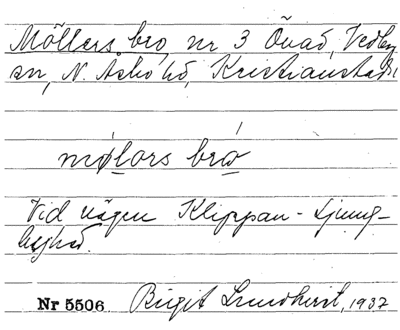 Möllers bro, nr 3 Önad, Vedby
sn, N. Åsbo hd, Kristianstads l
mølors brω
Vid vägen Klippan - Ljung-
byhed.
Nr 5506 Birgit Lundkvist, 1937